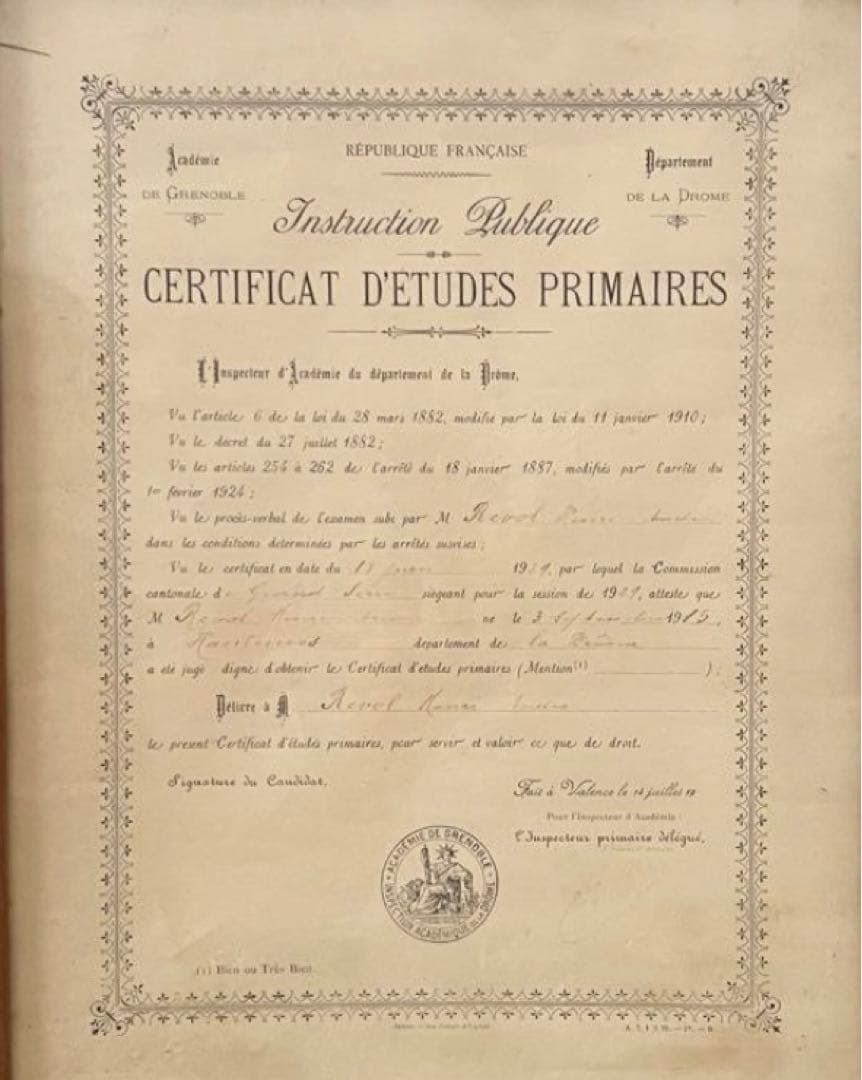 Académie
DE GRENOBLE
RÉPUBLIQUE FRANÇAISE
Département
DE LA DROME
Instruction Publique
CERTIFICAT D'ÉTUDES PRIMAIRES
L'Inspecteur d'Académie du département de la Drôme,
Vu l'article 6 de la loi du 28 mars 1882, modifié par la loi du 11 janvier 1910;
Vu le décret du 27 juillet 1882;
Vu les articles 254 à 262 de l'arrêté du 18 janvier 1887, modifiés par l'arrêté du
1er février 1924;
Vu le procès-verbal de l'examen subi par M Revol
dans les conditions déterminées par les arrêtés susvisés;
Vu le certificat en date du juin 19, par lequel la Commission
cantonale de Grand siégeant pour la session de 19, atteste que
M Revol né le 3 septembre 19,
à département de la Drôme
a été jugé digne d'obtenir le Certificat d'études primaires (Mention(1) );
Délivré à M Revol
le présent Certificat d'études primaires, pour servir et valoir ce que de droit.
Signature du Candidat,
Fait à Valence le juillet 19
Pour l'Inspecteur d'Académie
L'Inspecteur primaire délégué,
ACADÉMIE DE GRENOBLE
INSPECTION ACADÉMIQUE DE LA DROME
(1) Bien ou Très Bien.